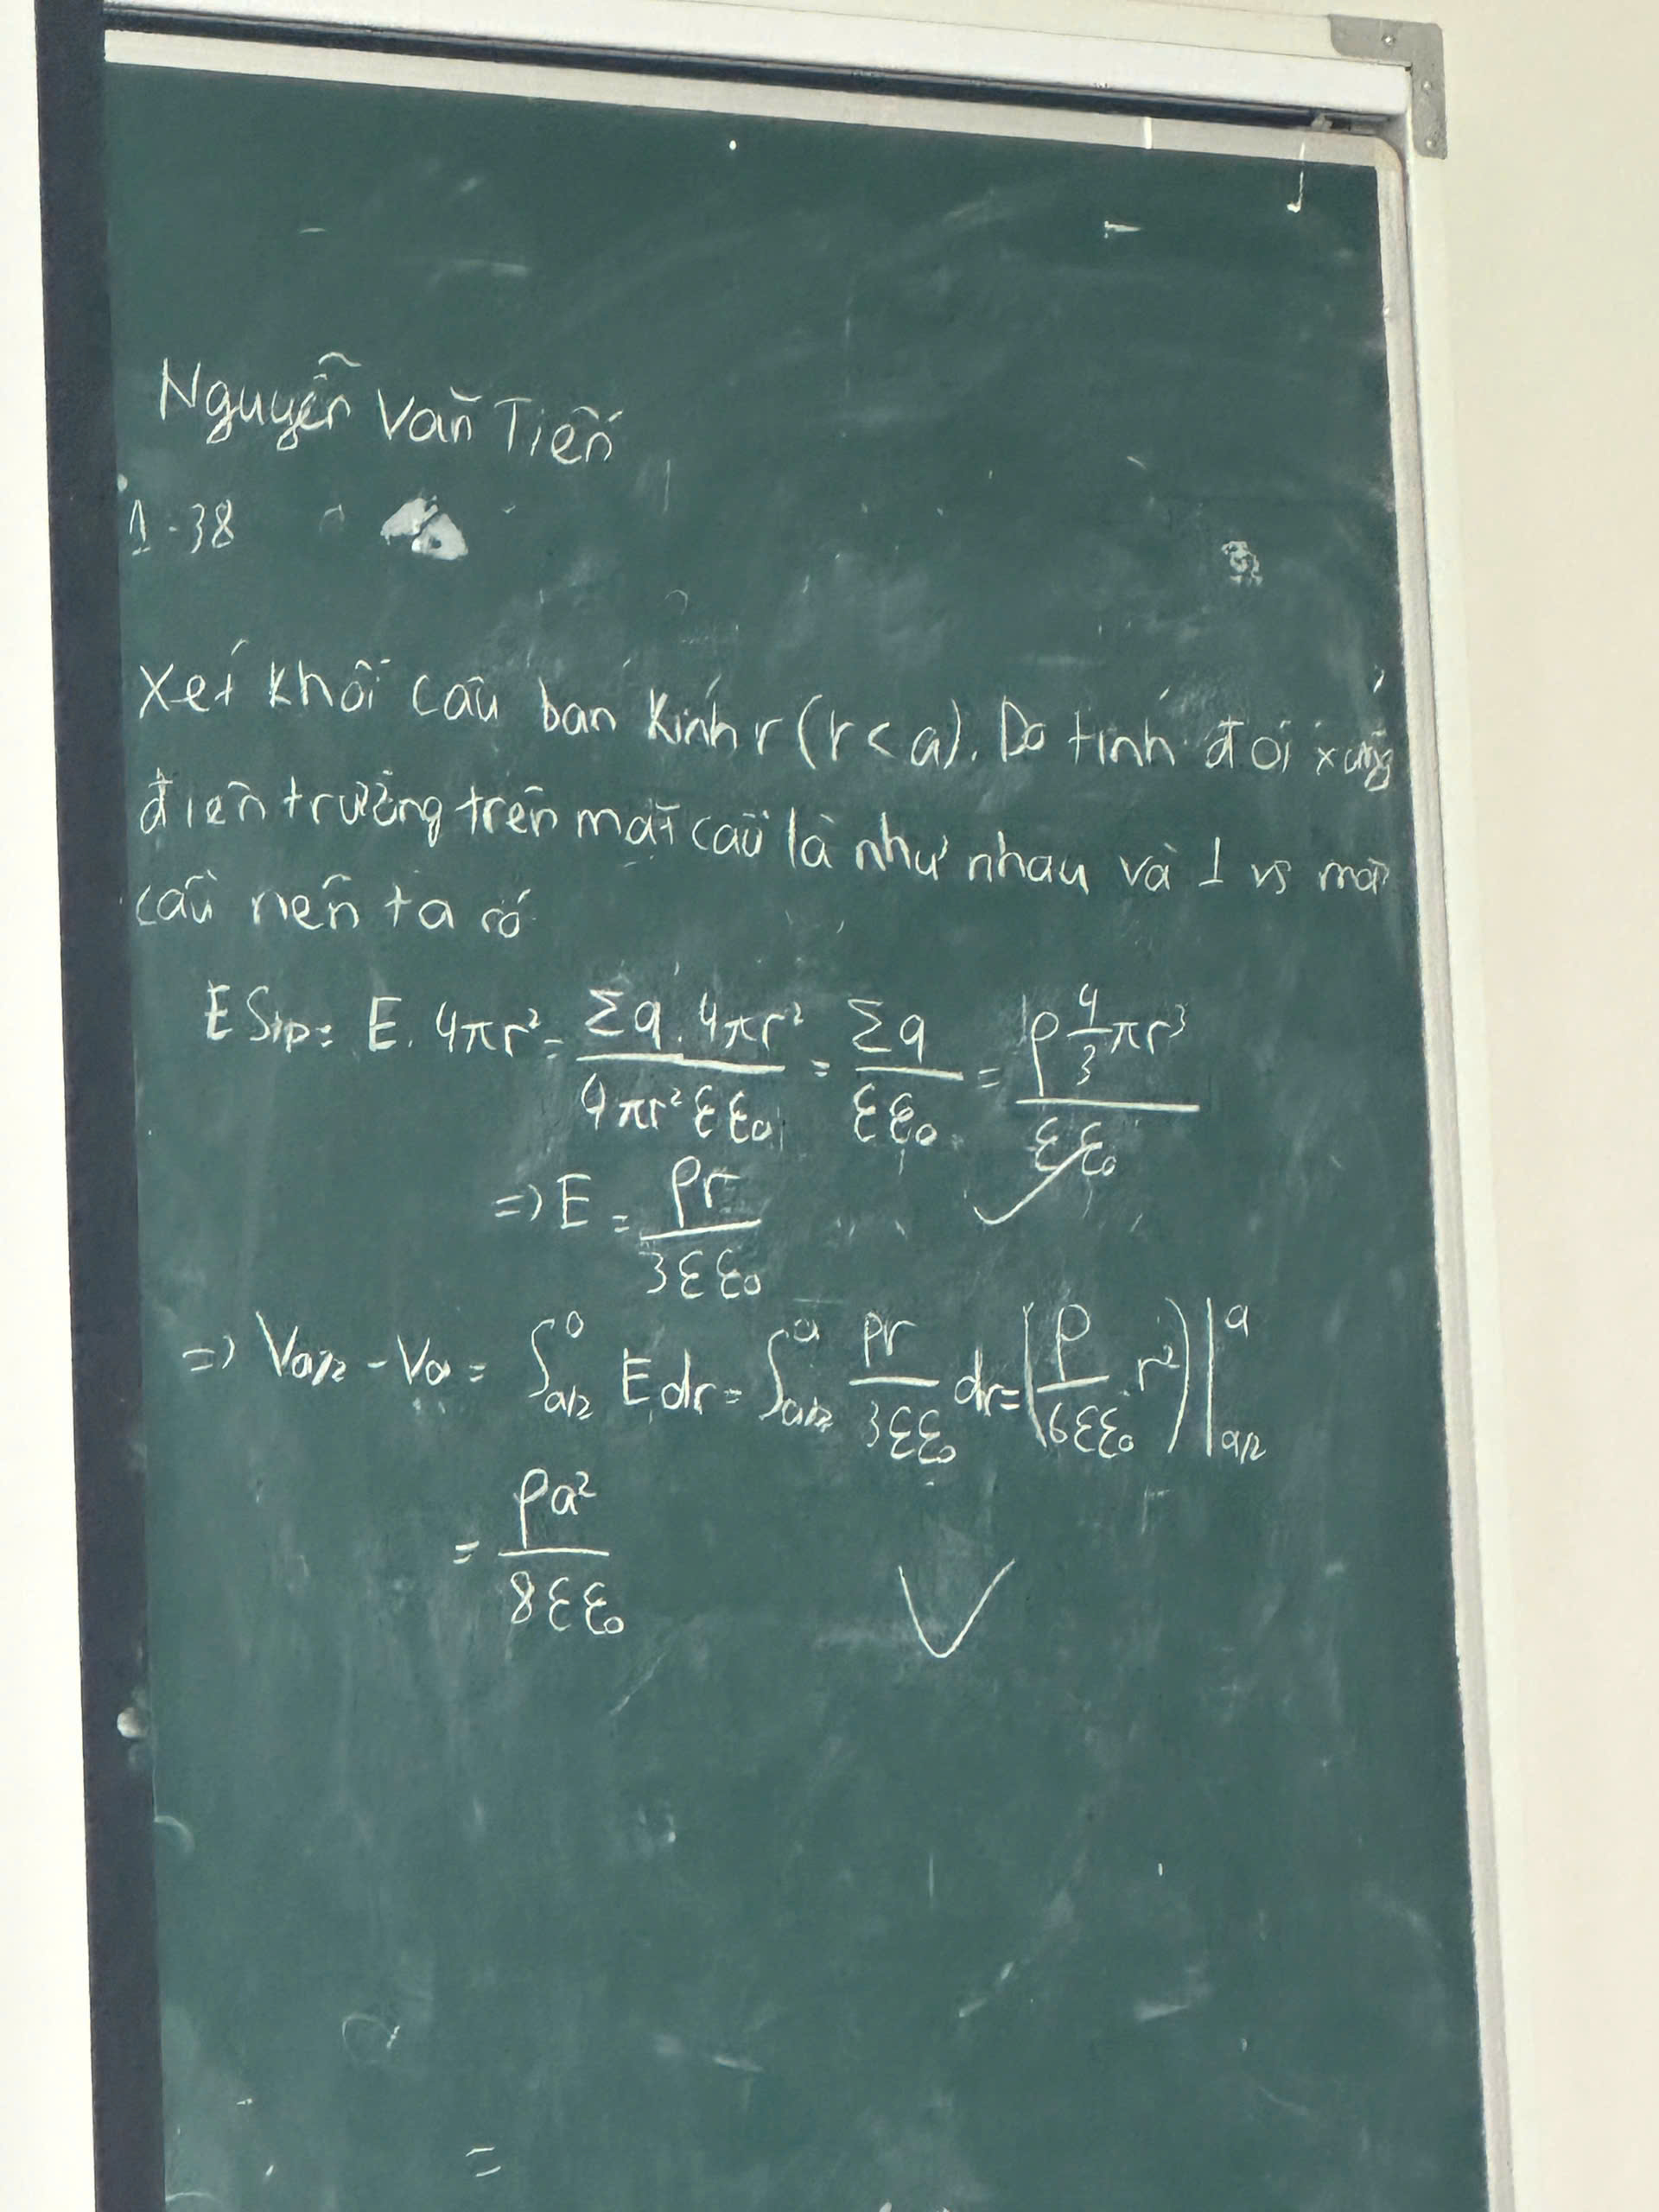 Nguyễn Văn Tiến
1-38
Xét khối cầu bán kính r (r < a). Do tính đối xứng
điện trường trên mặt cầu là như nhau và ⊥ vs mặt
cầu nên ta có
E.4πr² = Σq.4πr² / 4πr²εε₀ = Σq / εε₀ = ρ 4/3 πr³ / εε₀
=> E = ρr / 3εε₀
=> Va/2 - Va = ∫a/2^a E dr = ∫a/2^a ρr / 3εε₀ dr = (ρ / 6εε₀ r²) |a/2^a
= ρa² / 8εε₀